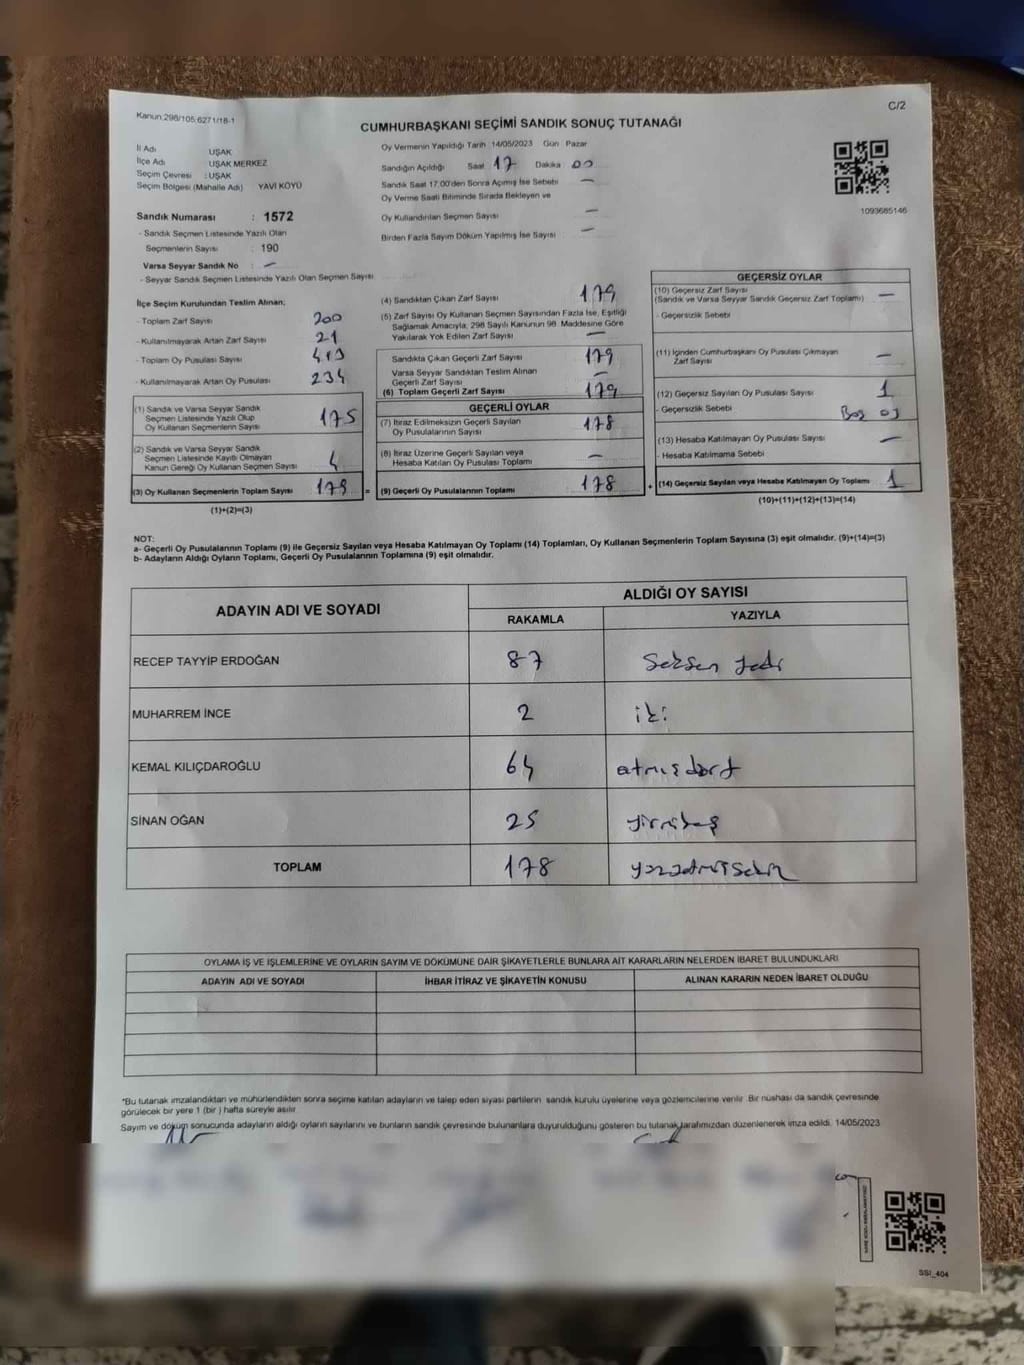 C/2
Kanun 298/105;6271/18-1
CUMHURBAŞKANI SEÇİMİ SANDIK SONUÇ TUTANAĞI
İl Adı : UŞAK
İlçe Adı : UŞAK MERKEZ
Seçim Çevresi : UŞAK
Seçim Bölgesi (Mahalle Adı) YAVI KÖYÜ
Sandık Numarası : 1572
- Sandık Seçmen Listesinde Yazılı Olan
Seçmenlerin Sayısı : 190
Varsa Seyyar Sandık No : –
- Seyyar Sandık Seçmen Listesinde Yazılı Olan Seçmen Sayısı
Oy Vermenin Yapıldığı Tarih 14/05/2023 Gün Pazar
Sandığın Açıldığı Saat 17 Dakika 00
Sandık Saat 17.00'den Sonra Açımış İse Sebebi –
Oy Verme Saati Bitiminde Sırada Bekleyen ve
Oy Kullandırılan Seçmen Sayısı –
Birden Fazla Sayım Döküm Yapılmış İse Sayısı –
1093685146
İlçe Seçim Kurulundan Teslim Alınan;
- Toplam Zarf Sayısı 200
- Kullanılmayarak Artan Zarf Sayısı 21
- Toplam Oy Pusulası Sayısı 413
- Kullanılmayarak Artan Oy Pusulası 234
(1) Sandık ve Varsa Seyyar Sandık
Seçmen Listesinde Yazılı Olup
Oy Kullanan Seçmenlerin Sayısı 175
(2) Sandık ve Varsa Seyyar Sandık
Seçmen Listesinde Kayıtlı Olmayan
Kanun Gereği Oy Kullanan Seçmen Sayısı 4
(3) Oy Kullanan Seçmenlerin Toplam Sayısı 179 =
(1)+(2)=(3)
(4) Sandıktan Çıkan Zarf Sayısı 179
(5) Zarf Sayısı Oy Kullanan Seçmen Sayısından Fazla İse, Eşitliği
Sağlamak Amacıyla, 298 Sayılı Kanunun 98. Maddesine Göre
Yakılarak Yok Edilen Zarf Sayısı –
Sandıkta Çıkan Geçerli Zarf Sayısı 179
Varsa Seyyar Sandıktan Teslim Alınan
Geçerli Zarf Sayısı –
(6) Toplam Geçerli Zarf Sayısı 179
GEÇERLİ OYLAR
(7) İtiraz Edilmeksizin Geçerli Sayılan
Oy Pusulalarının Sayısı 178
(8) İtiraz Üzerine Geçerli Sayılan veya
Hesaba Katılan Oy Pusulası Toplamı –
(9) Geçerli Oy Pusulalarının Toplamı 178 +
GEÇERSİZ OYLAR
(10) Geçersiz Zarf Sayısı
(Sandık ve Varsa Seyyar Sandık Geçersiz Zarf Toplamı) –
- Geçersizlik Sebebi
(11) İçinden Cumhurbaşkanı Oy Pusulası Çıkmayan
Zarf Sayısı –
(12) Geçersiz Sayılan Oy Pusulası Sayısı 1
- Geçersizlik Sebebi Boş oy
(13) Hesaba Katılmayan Oy Pusulası Sayısı –
- Hesaba Katılmama Sebebi
(14) Geçersiz Sayılan veya Hesaba Katılmayan Oy Toplamı 1
(10)+(11)+(12)+(13)=(14)
NOT:
a- Geçerli Oy Pusulalarının Toplamı (9) ile Geçersiz Sayılan veya Hesaba Katılmayan Oy Toplamı (14) Toplamları, Oy Kullanan Seçmenlerin Toplam Sayısına (3) eşit olmalıdır. (9)+(14)=(3)
b- Adayların Aldığı Oyların Toplamı, Geçerli Oy Pusulalarının Toplamına (9) eşit olmalıdır.
ADAYIN ADI VE SOYADI ALDIĞI OY SAYISI
RAKAMLA YAZIYLA
RECEP TAYYİP ERDOĞAN 87 seksen yedi
MUHARREM İNCE 2 iki
KEMAL KILIÇDAROĞLU 64 atmışdört
SİNAN OĞAN 25 yirmibeş
TOPLAM 178
OYLAMA İŞ VE İŞLEMLERİNE VE OYLARIN SAYIM VE DÖKÜMÜNE DAİR ŞİKAYETLERLE BUNLARA AİT KARARLARIN NELERDEN İBARET BULUNDUKLARI
ADAYIN ADI VE SOYADI İHBAR İTİRAZ VE ŞİKAYETİN KONUSU ALINAN KARARIN NEDEN İBARET OLDUĞU
*Bu tutanak imzalandıktan ve mühürlendikten sonra seçime katılan adayların ve talep eden siyasi partilerin sandık kurulu üyelerine veya gözlemcilerine verilir. Bir nüshası da sandık çevresinde
görülecek bir yere 1 (bir ) hafta süreyle asılır.
Sayım ve döküm sonucunda adayların aldığı oyların sayılarını ve bunların sandık çevresinde bulunanlara duyurulduğunu gösteren bu tutanak tarafımızdan düzenlenerek imza edildi. 14/05/2023
SSI_404